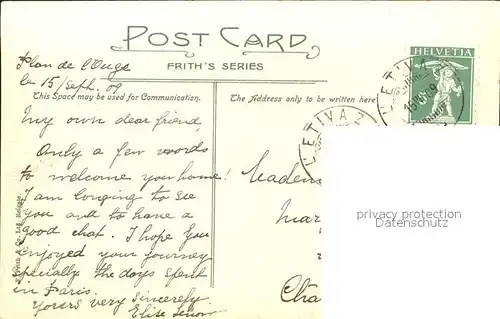 POST CARD
FRITH'S SERIES
Plan de l'Ouge
le 15/Sept. 09
This Space may be used for Communication.
The Address only to be written here
HELVETIA
L'ETIVAZ
L'ETIVAZ
My own dear friend,
Only a few words
to welcome you home!
I am longing to see
you and to have a
good chat. I hope you
enjoyed your journey
specially the days spent
in Paris.
Yours very sincerely
Elise
Madem
Mar
Cha
privacy protection
Datenschutz